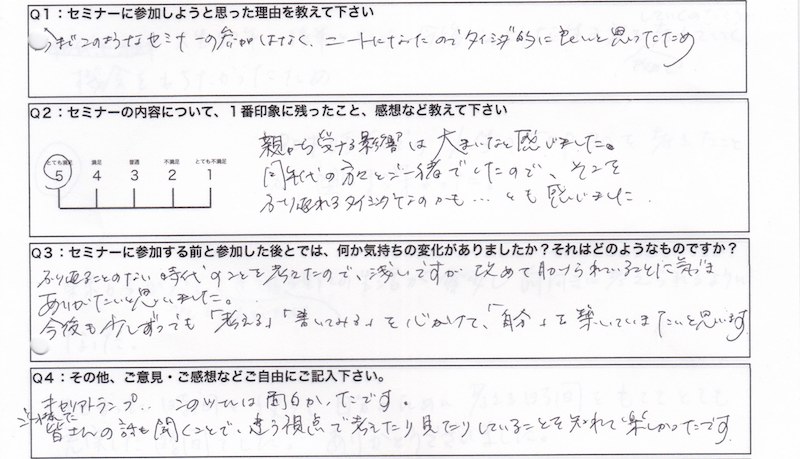 Q1：セミナーに参加しようと思った理由を教えて下さい
今までこのようなセミナーの参加はなく、ニートになったのでタイミング的に良いと思ったため
Q2：セミナーの内容について、1番印象に残ったこと、感想など教えて下さい
とても満足 満足 普通 不満足 とても不満足
5 4 3 2 1
親から受ける影響は大きいなと感じました。
同年代の方々とご一緒でしたので、そこを
ふり返れるタイミングなのかも…とも感じました
Q3：セミナーに参加する前と参加した後とでは、何か気持ちの変化がありましたか？それはどのようなものですか？
ふり返ることのない時代のことを考えたので、浅いですが改めて助けられていることに気づき
ありがたいと思いました。
今後も少しずつでも「考える」「書いてみる」を心がけて、「自分」を築いていきたいと思います
Q4：その他、ご意見・ご感想などご自由にご記入下さい。
キャリアトランプ‥ このツールは面白かったです。
皆さんの話も聞くことで、違う視点で考えたり見たりしていることを知れて楽しかったです